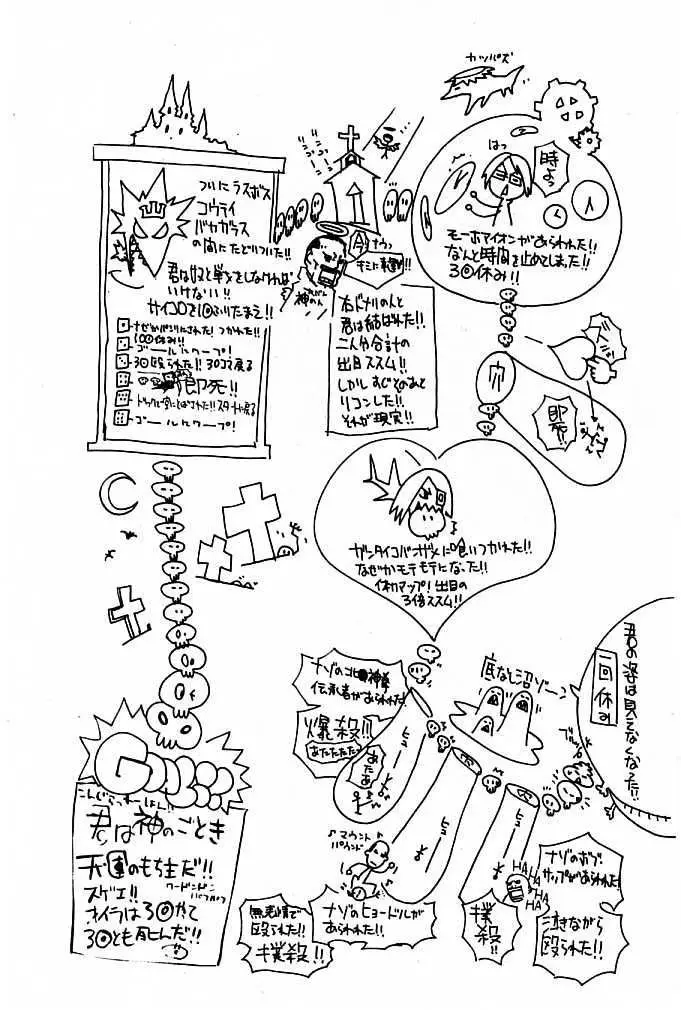 カツパズ
はっ
時よっ
モーホマイオンがあらわれた!!
なんと時間を止めてしまった!!
3回休み!!
即死!!
右ドナリの人と
君は結ばれた!!
二人分合計の
出目ススム!!
しかしすぐそのあと
リコンした!!
それが現実!!
ついにラスボス
コウテイ
バヤカラス
の間にたどりついた!!
君は奴と単身をしなければ
いけない!!
サイコロを1回ふりたまえ!!
100回休み!!
ゴールにワープ!
30回殴られた!! 30コマ戻る
即死!!
ゴールにワープ!
ガンタイコバンザメに喰いつかれた!!
なぜかモテモテになった!!
体力アップ! 出目の
3倍ススム!!
君の姿は見えなくなった!!
一回休み
底なし沼ゾーン
ナゾの北■神拳
伝承者があらわれた!
爆殺!!
あたたたた
あたあ
ヒュー
ヒュー
ヒュー
ナゾのボブ・
サップがあらわれた!
泣きながら
殴られた!!
HA
HA
HA
HA
撲殺!!
マウント
パウンド
ナゾのヒョードルが
あらわれた!!
無表情で
殴られた!!
撲殺!!
こんぐらっちゅれーしょん!!
君は神のごとき
天運のもち主だ!!
スゲエ!!
オイラは3回やって
3回とも死んだ!!